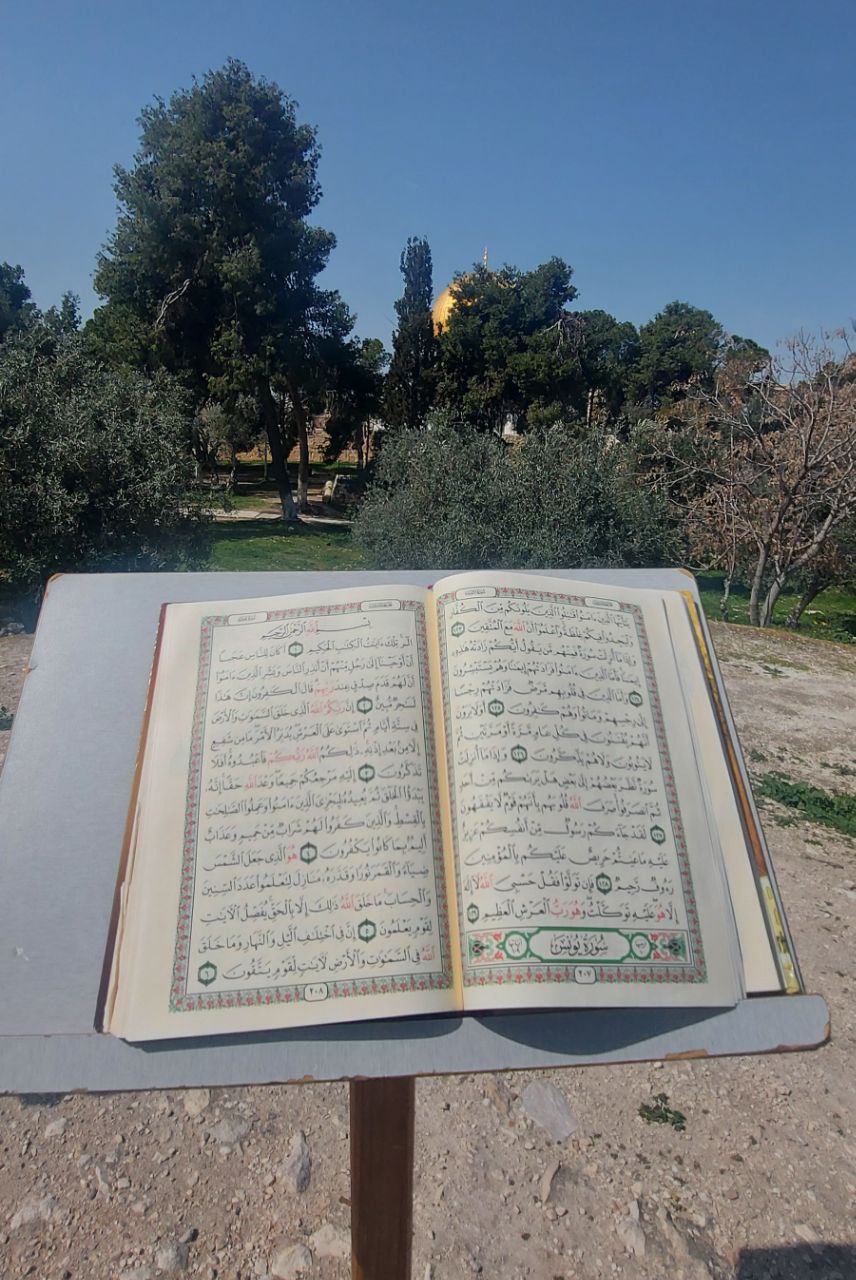 يَٰٓأَيُّهَا ٱلَّذِينَ ءَامَنُوا۟ قَٰتِلُوا۟ ٱلَّذِينَ يَلُونَكُم مِّنَ ٱلْكُفَّارِ
وَلْيَجِدُوا۟ فِيكُمْ غِلْظَةً وَٱعْلَمُوٓا۟ أَنَّ ٱللَّهَ مَعَ ٱلْمُتَّقِينَ ١٢٣
وَإِذَا مَآ أُنزِلَتْ سُورَةٌ فَمِنْهُم مَّن يَقُولُ أَيُّكُمْ زَادَتْهُ هَٰذِهِۦٓ
إِيمَٰنًا فَأَمَّا ٱلَّذِينَ ءَامَنُوا۟ فَزَادَتْهُمْ إِيمَٰنًا وَهُمْ يَسْتَبْشِرُونَ
١٢٤ وَأَمَّا ٱلَّذِينَ فِى قُلُوبِهِم مَّرَضٌ فَزَادَتْهُمْ رِجْسًا
إِلَىٰ رِجْسِهِمْ وَمَاتُوا۟ وَهُمْ كَٰفِرُونَ ١٢٥ أَوَلَا يَرَوْنَ
أَنَّهُمْ يُفْتَنُونَ فِى كُلِّ عَامٍ مَّرَّةً أَوْ مَرَّتَيْنِ ثُمَّ
لَا يَتُوبُونَ وَلَا هُمْ يَذَّكَّرُونَ ١٢٦ وَإِذَا مَآ أُنزِلَتْ
سُورَةٌ نَّظَرَ بَعْضُهُمْ إِلَىٰ بَعْضٍ هَلْ يَرَىٰكُم مِّنْ أَحَدٍ
ثُمَّ ٱنصَرَفُوا۟ صَرَفَ ٱللَّهُ قُلُوبَهُم بِأَنَّهُمْ قَوْمٌ لَّا يَفْقَهُونَ
١٢٧ لَقَدْ جَآءَكُمْ رَسُولٌ مِّنْ أَنفُسِكُمْ عَزِيزٌ
عَلَيْهِ مَا عَنِتُّمْ حَرِيصٌ عَلَيْكُم بِٱلْمُؤْمِنِينَ
رَءُوفٌ رَّحِيمٌ ١٢٨ فَإِن تَوَلَّوْا۟ فَقُلْ حَسْبِىَ ٱللَّهُ لَآ إِلَٰهَ
إِلَّا هُوَ عَلَيْهِ تَوَكَّلْتُ وَهُوَ رَبُّ ٱلْعَرْشِ ٱلْعَظِيمِ ١٢٩
سُورَةُ يُونُسَ
٢٠٧
بِسْمِ ٱللَّهِ ٱلرَّحْمَٰنِ ٱلرَّحِيمِ
الٓر تِلْكَ ءَايَٰتُ ٱلْكِتَٰبِ ٱلْحَكِيمِ ١ أَكَانَ لِلنَّاسِ عَجَبًا
أَنْ أَوْحَيْنَآ إِلَىٰ رَجُلٍ مِّنْهُمْ أَنْ أَنذِرِ ٱلنَّاسَ وَبَشِّرِ ٱلَّذِينَ ءَامَنُوٓا۟
أَنَّ لَهُمْ قَدَمَ صِدْقٍ عِندَ رَبِّهِمْ قَالَ ٱلْكَٰفِرُونَ إِنَّ هَٰذَا
لَسَٰحِرٌ مُّبِينٌ ٢ إِنَّ رَبَّكُمُ ٱللَّهُ ٱلَّذِى خَلَقَ ٱلسَّمَٰوَٰتِ وَٱلْأَرْضَ
فِى سِتَّةِ أَيَّامٍ ثُمَّ ٱسْتَوَىٰ عَلَى ٱلْعَرْشِ يُدَبِّرُ ٱلْأَمْرَ مَا مِن شَفِيعٍ
إِلَّا مِنۢ بَعْدِ إِذْنِهِۦ ذَٰلِكُمُ ٱللَّهُ رَبُّكُمْ فَٱعْبُدُوهُ أَفَلَا
تَذَكَّرُونَ ٣ إِلَيْهِ مَرْجِعُكُمْ جَمِيعًا وَعْدَ ٱللَّهِ حَقًّا إِنَّهُۥ
يَبْدَؤُا۟ ٱلْخَلْقَ ثُمَّ يُعِيدُهُۥ لِيَجْزِىَ ٱلَّذِينَ ءَامَنُوا۟ وَعَمِلُوا۟ ٱلصَّٰلِحَٰتِ
بِٱلْقِسْطِ وَٱلَّذِينَ كَفَرُوا۟ لَهُمْ شَرَابٌ مِّنْ حَمِيمٍ وَعَذَابٌ
أَلِيمٌۢ بِمَا كَانُوا۟ يَكْفُرُونَ ٤ هُوَ ٱلَّذِى جَعَلَ ٱلشَّمْسَ
ضِيَآءً وَٱلْقَمَرَ نُورًا وَقَدَّرَهُۥ مَنَازِلَ لِتَعْلَمُوا۟ عَدَدَ ٱلسِّنِينَ
وَٱلْحِسَابَ مَا خَلَقَ ٱللَّهُ ذَٰلِكَ إِلَّا بِٱلْحَقِّ يُفَصِّلُ ٱلْءَايَٰتِ
لِقَوْمٍ يَعْلَمُونَ ٥ إِنَّ فِى ٱخْتِلَٰفِ ٱلَّيْلِ وَٱلنَّهَارِ وَمَا خَلَقَ
ٱللَّهُ فِى ٱلسَّمَٰوَٰتِ وَٱلْأَرْضِ لَءَايَٰتٍ لِّقَوْمٍ يَتَّقُونَ ٦
٢٠٨